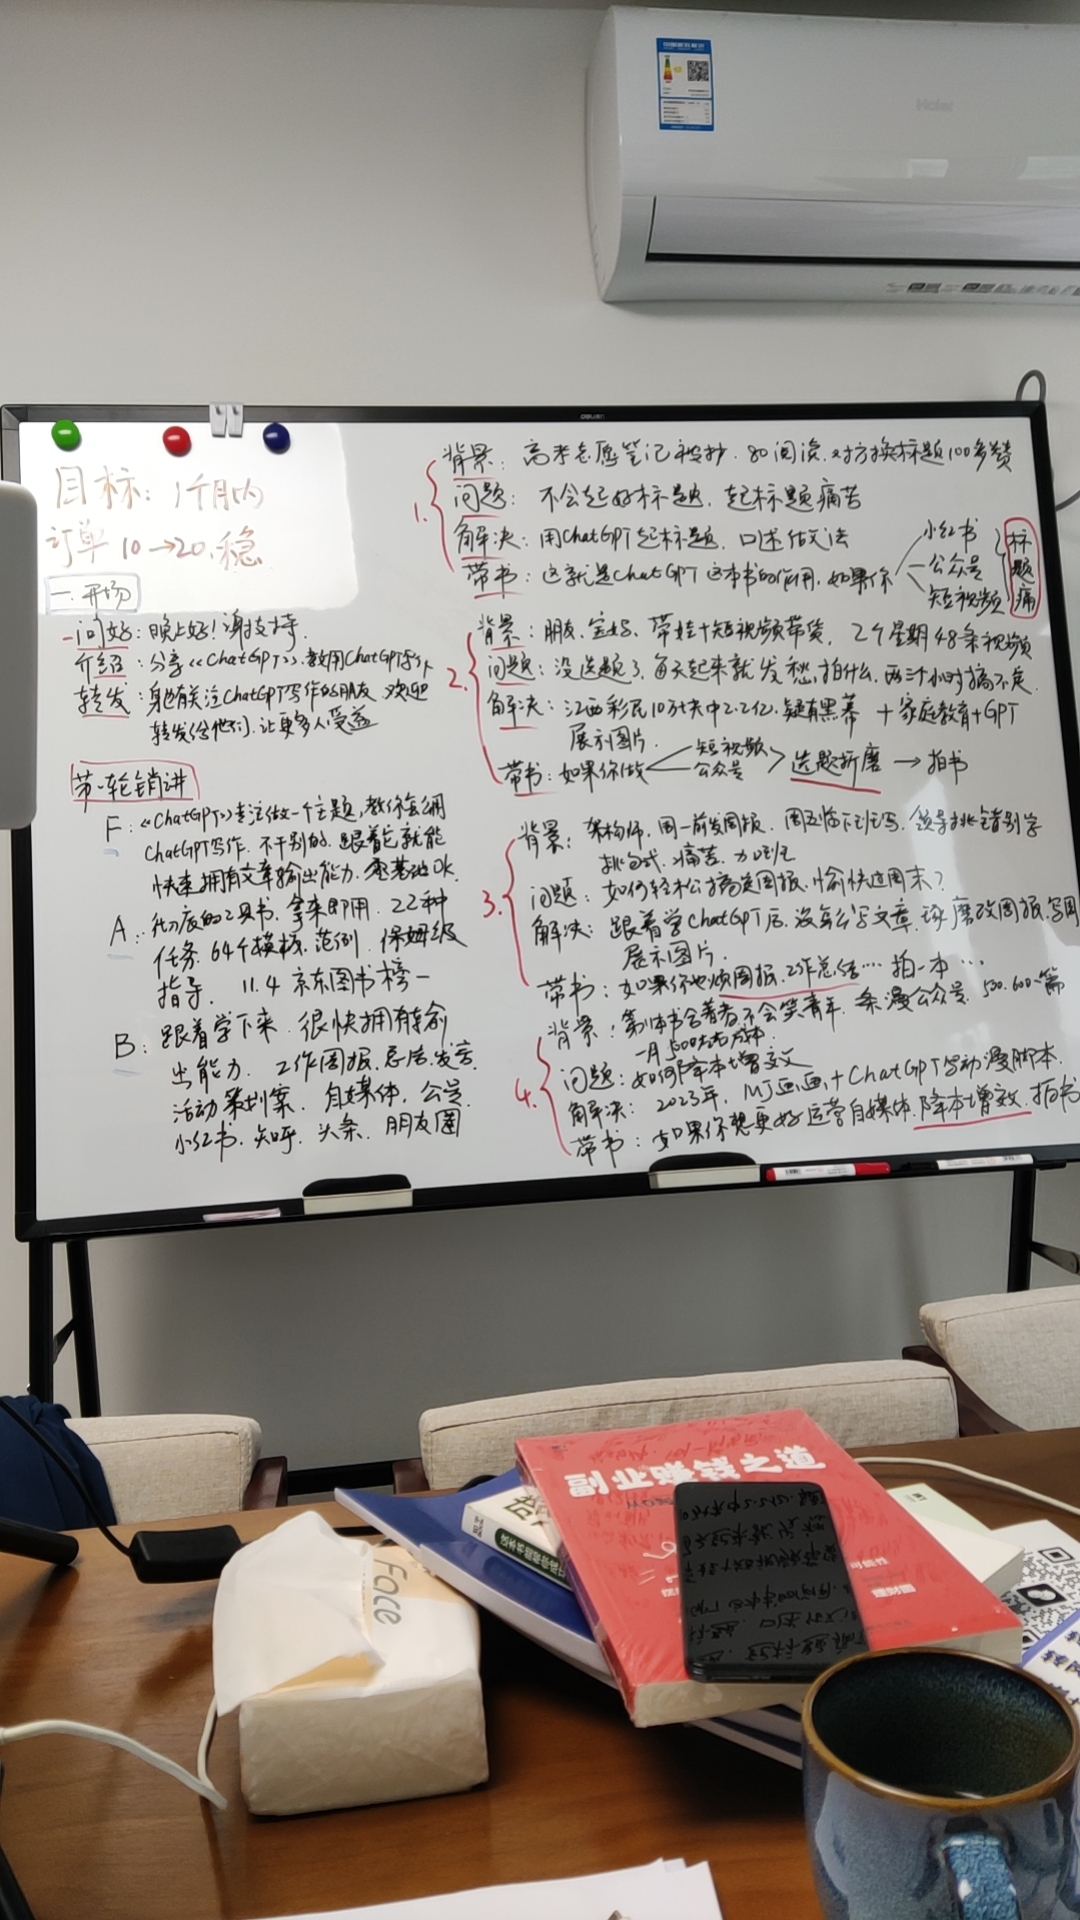 Haier
deli
目标：1个月内
订单 10→20，稳
一、开场
问好：晚上好！谢支持
介绍：分享《ChatGPT》，教用ChatGPT写作
转发：身边有关注ChatGPT写作的朋友 欢迎
转发给他们，让更多人受益
第一轮销讲
F：《ChatGPT》专注做一个主题，教你会用
ChatGPT写作，不干别的，跟着它就能
快速拥有文章输出能力，零基础OK
A：彻底的工具书，拿来即用，22种
任务，64个模板，范例，保姆级
指导， 11.4 京东图书榜一
B：跟着学下来，很快拥有输
出能力，工作周报、总结、发言
活动策划案，自媒体，公号
小红书、知乎、头条、朋友圈
1. 背景：高考志愿笔记被抄，80阅读，对方换标题100多赞
问题：不会起好标题，起标题痛苦
解决：用ChatGPT起标题，口述做法
带书：这就是ChatGPT这本书的作用，如果你
小红书
公众号
短视频
标题痛
2. 背景：朋友，宝妈，带娃+短视频带货，2个星期48条视频
问题：没选题了，每天起来就发愁拍什么，两三个小时搞不定
解决：江西彩民10万块中2.2亿，疑有黑幕 + 家庭教育+GPT
展示图片
带书：如果你做
短视频
公众号
选题折磨 → 拍书
3. 背景：架构师，周一前发周报，周五临下班写，领导挑错别字
挑句式，痛苦，加班
问题：如何轻松搞定周报，愉快过周末？
解决：跟着学ChatGPT后，没怎么写文章，琢磨改周报，写周
展示图片
带书：如果你也烦周报，工作总结… 拍一本…
4. 背景：第1本书合著者，不会笑青年，条漫公众号，500.600一篇
一月5000左右成本
问题：如何降本增效
解决：2023年，MJ画画+ChatGPT写动漫脚本
带书：如果你想更好运营自媒体，降本增效，拍书
副业赚钱之道
Face